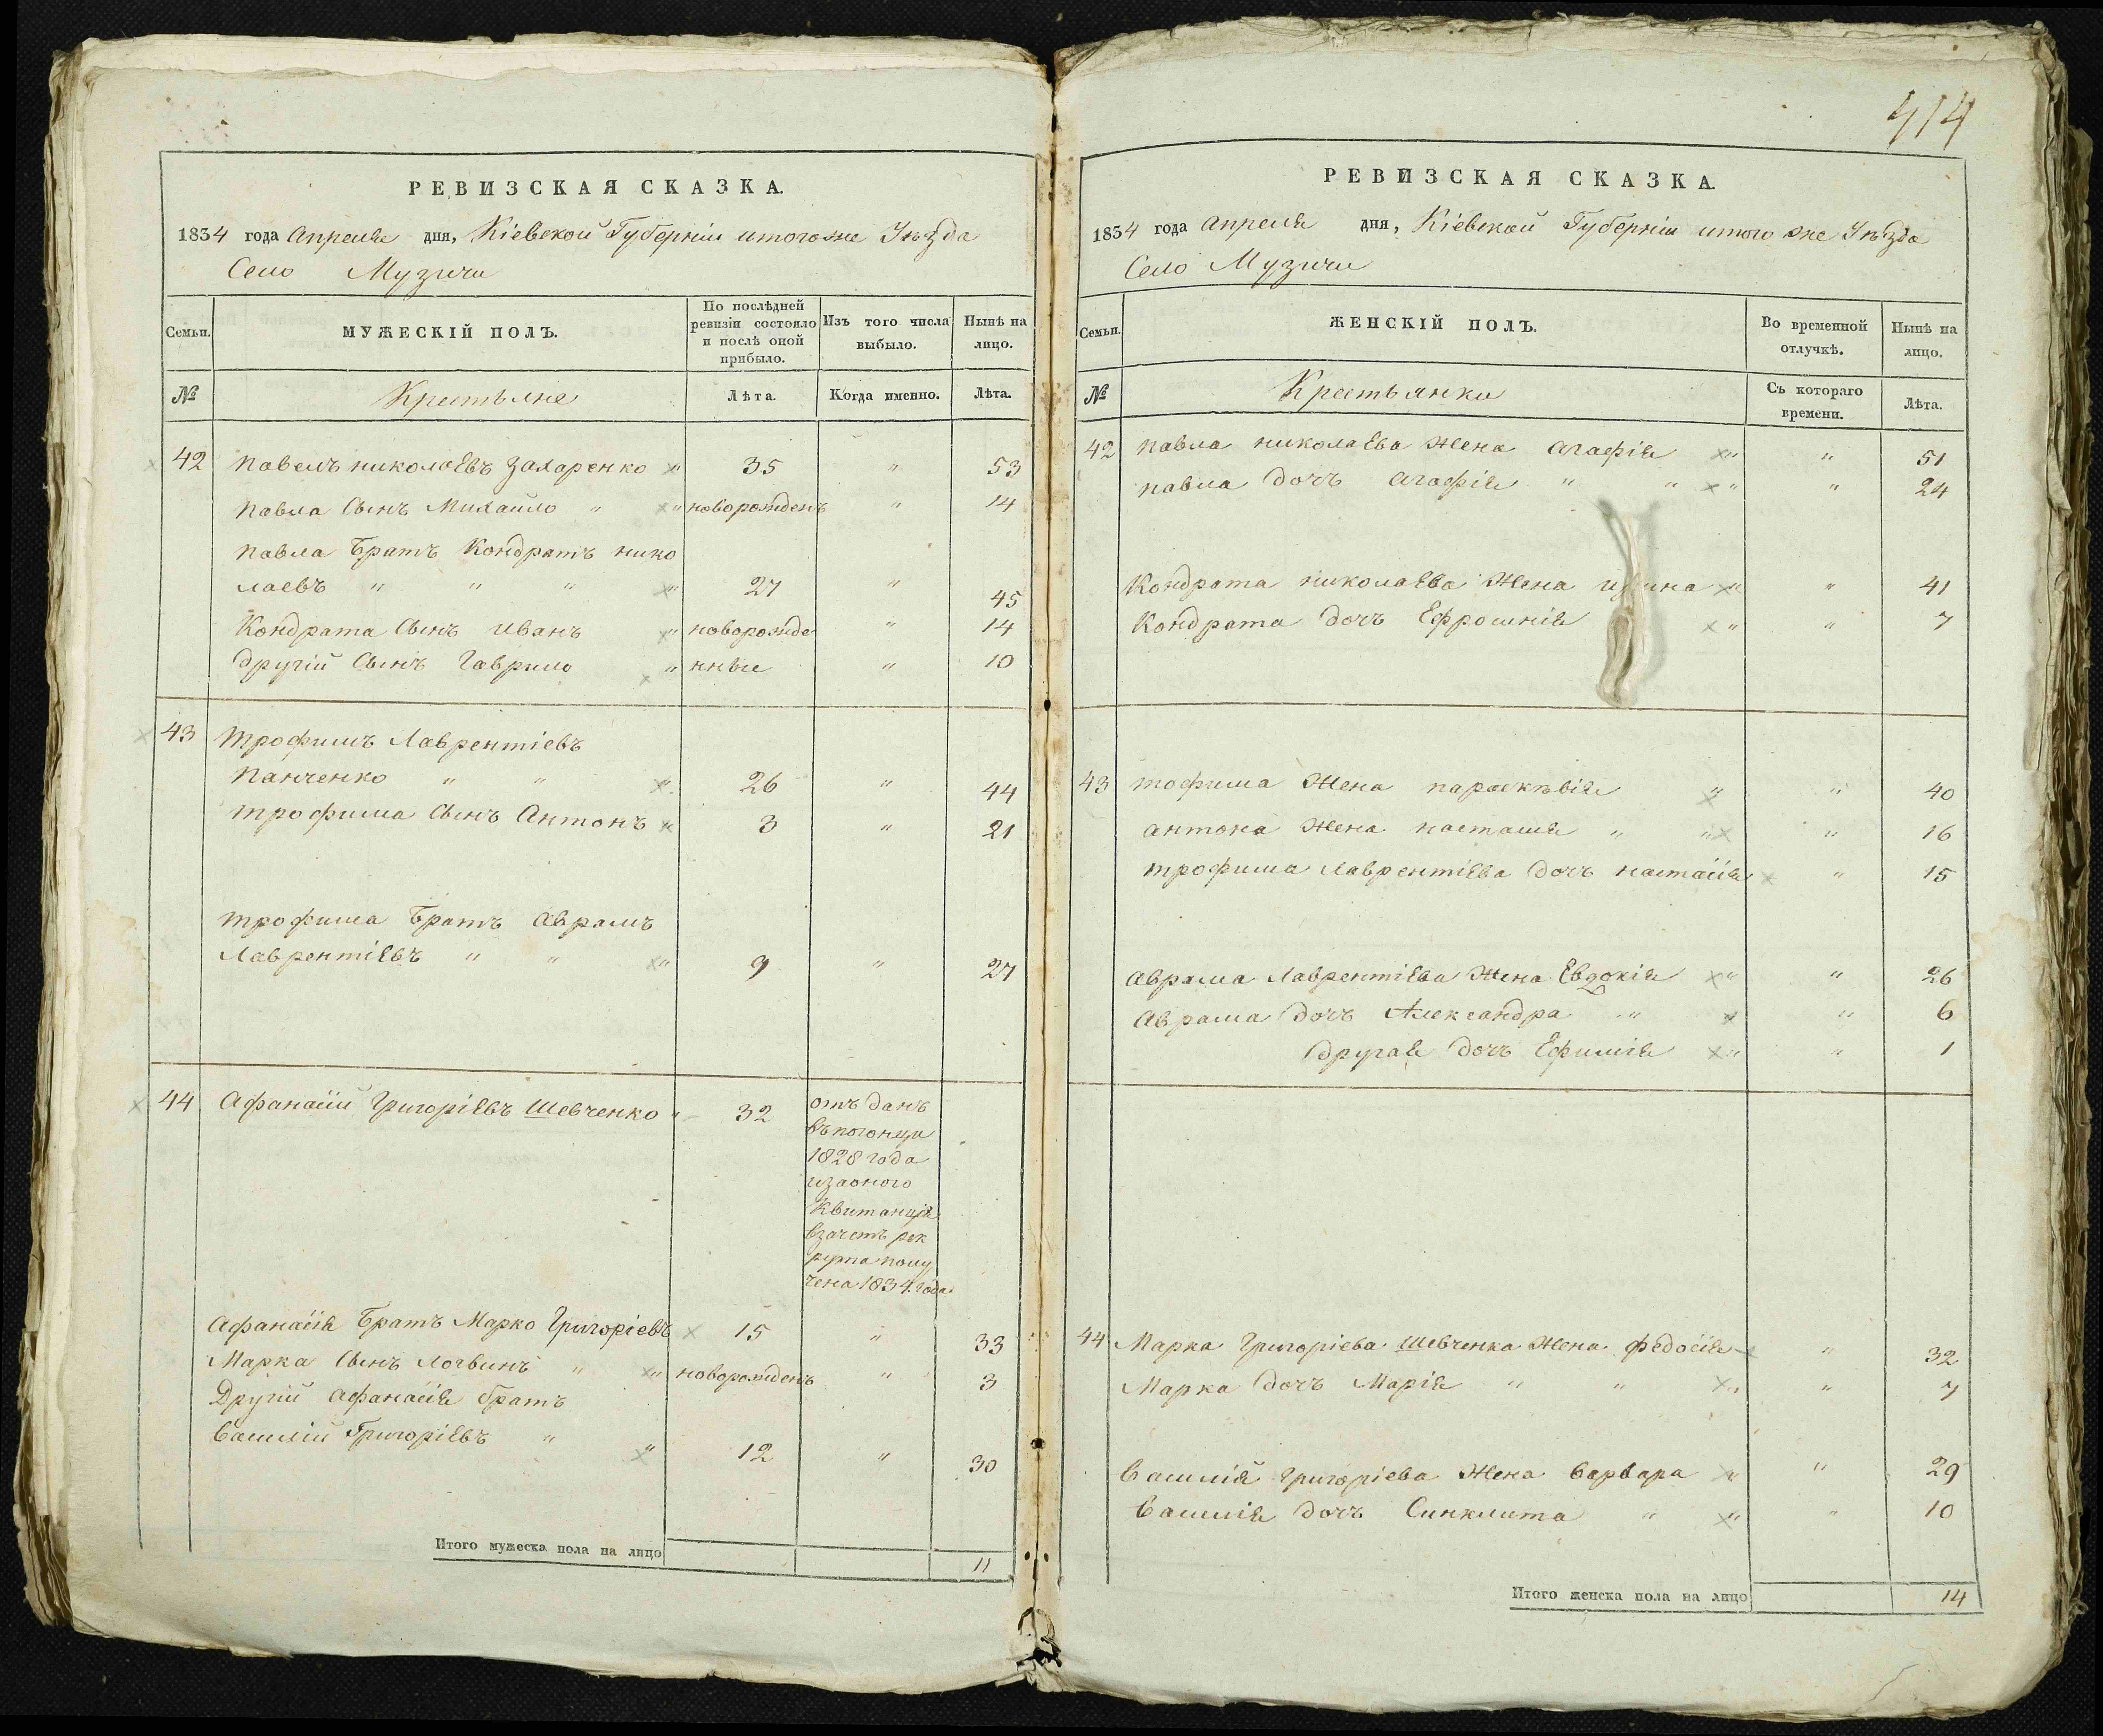 РЕВИЗСКАЯ СКАЗКА.
1834 года Апреля дня, Кіевской Губерніи итогоже Уѣзда
Село Музичи
Семьи. МУЖЕСКІЙ ПОЛЪ. По послѣдней ревизіи состояло и послѣ оной прибыло. Изъ того числа выбыло. Нынѣ на лицо.
№ Крестьяне Лѣта. Когда именно. Лѣта.
42 павелъ николаЕвъ Захаренко " 35 " 53
павла Сынъ Михайло " " новорожденъ " 14
павла Братъ Кондратъ нико
лаевъ " " " " 27 " 45
Кондрата Сынъ иванъ " новорожде " 14
другій Сынъ Гаврило " нные " 10
43 трофимъ Лаврентіевъ
панченко " " " 26 " 44
трофима Сынъ Антонъ " 3 " 21
трофима Братъ Аврамъ
ЛаврентіЕвъ " " " 9 " 27
44 Афанасій ГригоріЕвъ Шевченко " 32 отъ данъ
въпогонци
1828 года
изаоного
Квитанція
взачетъ рек
рута полу
чена 1834 года
Афанасія Братъ Марко Григоріевъ 15 " 33
Марка Сынъ Логвинъ " " новорожденъ " 3
Другій Афанасія братъ
Василій ГригоріЕвъ " " 12 " 30
Итого мужеска пола на лицо 11
414
РЕВИЗСКАЯ СКАЗКА.
1834 года Апреля дня, Кіевской Губерніи итого же Уѣзда
Село Музичи
Семьи. ЖЕНСКІЙ ПОЛЪ. Во временной отлучкѣ. Нынѣ на лицо.
№ Крестьянки Съ котораго времени. Лѣта.
42 павла николаЕва Жена агафія " " 51
павла дочъ агафія " " " " 24
Кондрата николаЕва Жена " " 41
Кондрата дочъ Ефросинія " " 7
43 тофима Жена параскѣвія " " 40
антона Жена настасія " " " 16
трофима ЛаврентіЕва дочъ настасія " 15
Аврама ЛаврентіЕва Жена Евдокія " " 26
Аврама дочъ Александра " " " 6
другая дочъ Ефимія " " 1
44 Марка Григоріева Шевченка Жена федосія " 32
Марка дочъ Марія " " " " 7
Василія григоріева Жена варвара " " 29
Василія дочъ Синклита " " " 10
Итого женска пола на лицо 14